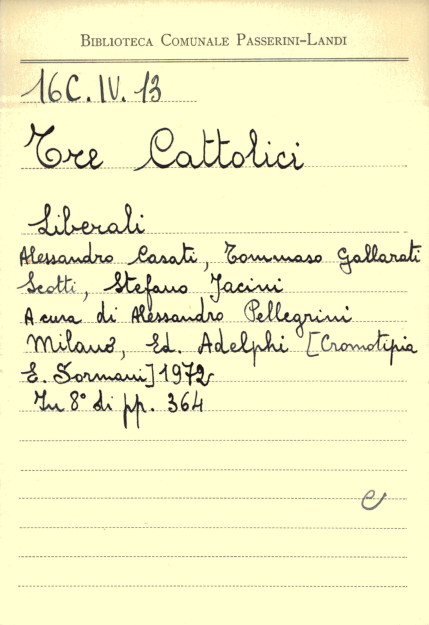 BIBLIOTECA COMUNALE PASSERINI-LANDI
16C. IV. 13
Tre Cattolici
Liberali
Alessandro Casati, Tommaso Gallarati
Scotti, Stefano Jacini
A cura di Alessandro Pellegrini
Milano, Ed. Adelphi [Cromotipia
E. Sormani] 1972
In 8° di pp. 364
e